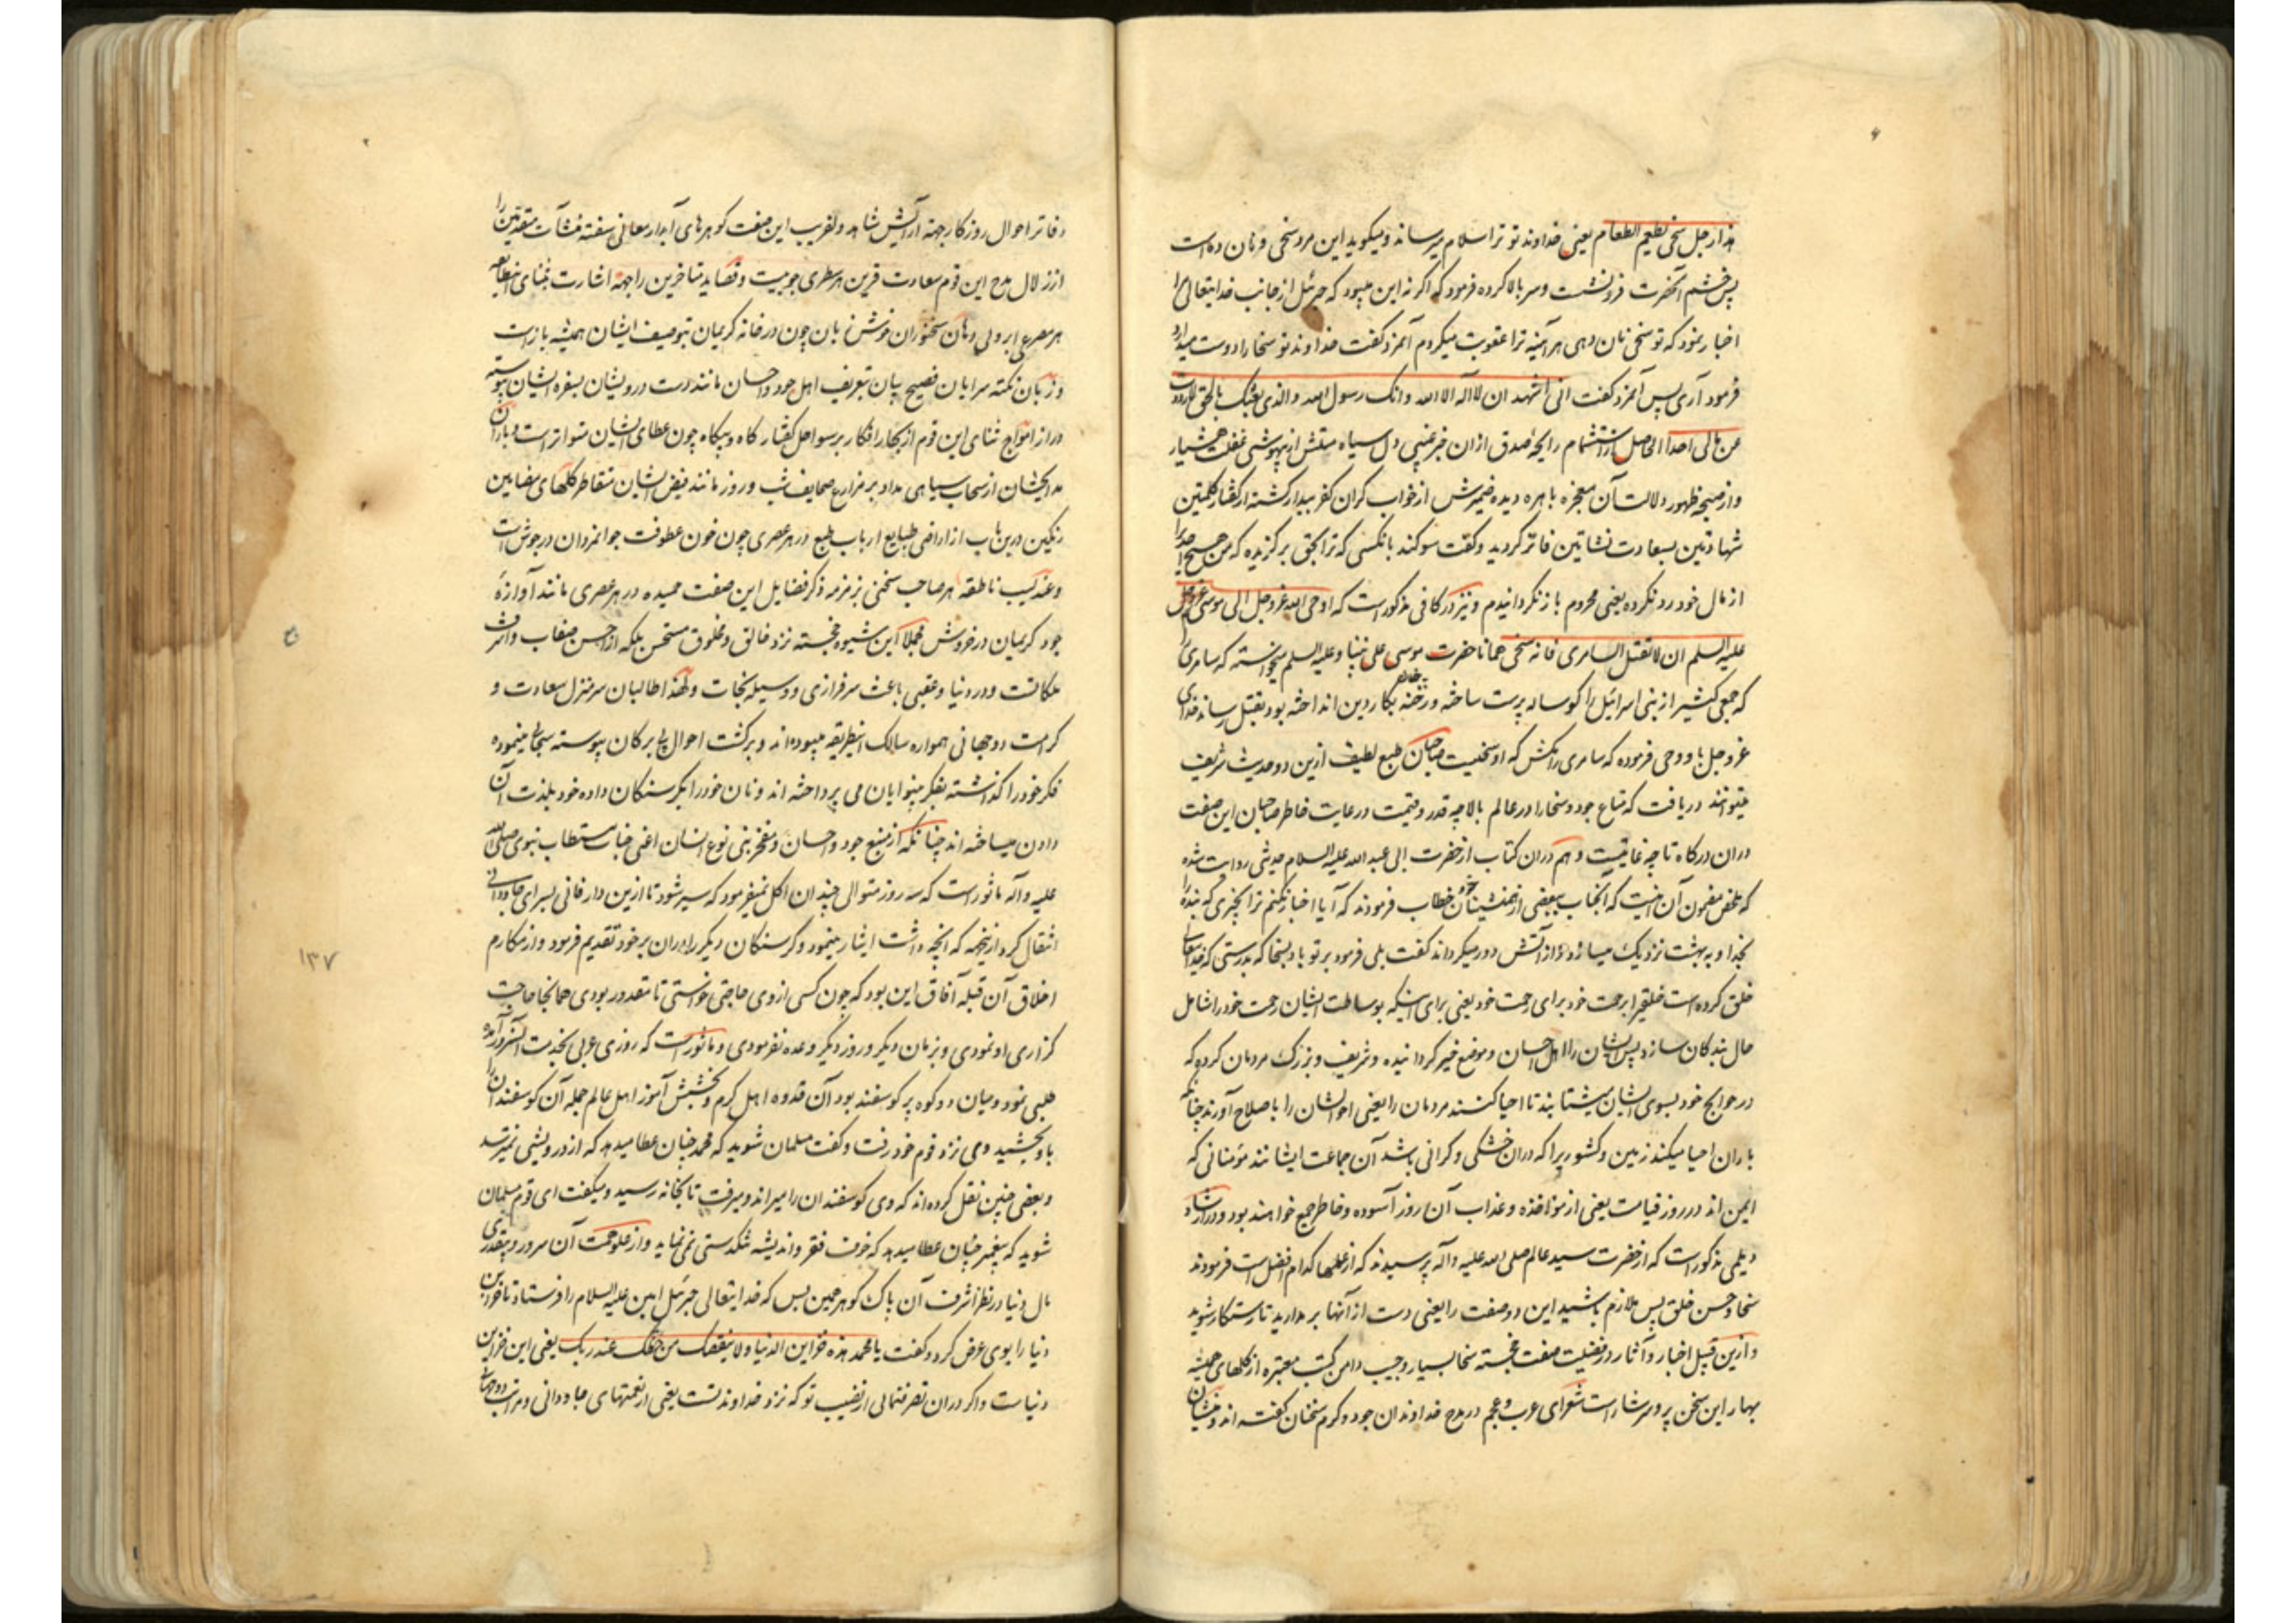 هذا رجل سخی یطعم الطعام یعنی خداوند تو ترا سلام میرساند و میکوید این مرد سخی و نان ده است
پس خشم آنحضرت فرو نشست و سر بالا کرده فرمود که اکر نه این میبود که جبرئیل از جانب خدایتعالی مرا
اخبار نمود که تو سخی نان دهی هر آینه ترا عقوبت میکردم آنمرد کفت خداوند تو سخا را دوست میدارد
فرمود آری پس آنمرد کفت انی اشهد ان لا اله الا الله و انک رسول الله والذی بعثک بالحق لا رددت
عن مالی احدا الحاصل از استشمام رایحه صدق ازان خبر غیبی دل سیاه مستش از بیهوشی غفلت هشیار
و از صبحه ظهور دلالت آن معجزه باهره دیده ضمیرش از خواب کران کفر بیدار کشته از کفتار کلمتین
شهادتین بسعادت نشاتین فائز کردید و کفت سوکند بانکسی که ترا بحق برکزیده که من هیچ احدیرا
از مال خود رد نکرده یعنی محروم باز نکردانیدم و نیز در کافی مذکور است که اوحی الله عز و جل الی موسی
علیه السلم ان لا تقتل السامری فانه سخی همانا حضرت موسی علی نبینا و علیه السلم میخواسته که سامری
که جمعی کثیر از بنی اسرائیل را کوساله پرست ساخته و رخنه بکار دین انداخته بود بقتل رساند خدای
عز و جل باو وحی فرموده که سامری را مکش که او سخیست صاحبان طبع لطیف ازین دو حدیث شریف
میتوانند دریافت که متاع جود و سخا را در عالم بالا چه قدر و قیمت و رعایت خاطر صاحبان این صفت
دران درکاه تا چه غایتست و هم دران کتاب از حضرت ابی عبد الله علیه السلام حدیثی روایت شده
که ملخص مضمون آن اینست که آنجناب ببعضی از همنشینان خود خطاب فرمودند که آیا اخبار نکنم ترا بچیزی که بنده را
بخدا و به بهشت نزدیک میسازد و از آتش دور میکرداند کفت بلی فرمود بر تو باد بسخا که بدرستی که خدایتعالی
خلق کرده است خلقیرا برحمت خود برای رحمت خود یعنی برای اینکه بوساطت ایشان رحمت خود را شامل
حال بندکان سازد پس ایشان را اهل احسان و موضع خیر کردانیده و شریف و بزرک مردمان کرده که
در حوایج خود بسوی ایشان میشتابند تا احیا کنند مردمان را یعنی احوالشان را باصلاح آورند چنانکه
باران احیا میکند زمین و کشوریرا که دران خشکی و کرانی باشد آن جماعت ایشانند مؤمنانی که
ایمن اند در روز قیامت یعنی از مؤاخذه و عذاب آن روز آسوده و خاطر جمع خواهند بود و در ارشاد
دیلمی مذکور است که از حضرت سید عالم صلی الله علیه و آله پرسیدند که از عملها کدام افضل است فرمودند
سخا و حسن خلق پس ملازم باشید این دو صفت را یعنی دست از آنها بر مدارید تا رستکار شوید
و ازین قبیل اخبار و آثار در فضیلت صفت خجسته سخا بسیار و جیب و دامن کتب معتبره از کلهای همیشه
بهار این سخن پر و سرشار است شعرای عرب و عجم در مدح خداوندان جود و کرم سخنان کفته اند و منشیان
دفاتر احوال روزکار جهة آرایش شاهد دلفریب این صفت کوهرهای آبدار معانی سفته منشآت متقدمین را
از زلال مدح این قوم سعادت قرین هر سطری جوییست و قصاید متاخرین را جهة اشارت بثنای این طایفه
هر مصرعی ابرویی دهان سخنوران خوش زبان چون در خانه کریمان بتوصیف ایشان همیشه باز است
و زبان نکته سرایان فصیح بیان بتعریف اهل جود و احسان مانند دست درویشان بسفره ایشان پیوسته
دراز امواج ثنای این قوم از بحار افکار بر سواحل کفتار کاه و بیکاه چون عطای ایشان متواتر است و باران
مدایحشان از سحاب سیاهی مداد بر مزارع صحایف شب و روز مانند فیض ایشان متقاطر کلهای مضامین
رنکین درین باب از اراضی طبایع ارباب طبع در هر عصری چون خون عطوفت جوانمردان در جوش است
و عندلیب ناطقه هر صاحب سخنی بزمزمه ذکر فضایل این صفت حمیده در هر عصری مانند آوازه
جود کریمان در خروش مجملا این شیوه خجسته نزد خالق و مخلوق مستحسن بلکه از احسن صفات و اشرف
ملکاتست و در دنیا و عقبی باعث سرفرازی و وسیله نجات و لهذا طالبان سرمنزل سعادت و
کرامت دوجهانی همواره سالک این طریقه میبوده اند و برکشت احوال بی برکان پیوسته سحابی مینموده
فکر خود را کذاشته بفکر بینوایان می پرداخته اند و نان خود را بکرسنکان داده خود بلذت آن
دادن میساخته اند چنانکه از منبع جود و احسان و مفخر بنی نوع انسان اعنی جناب مستطاب نبوی صلی الله
علیه و آله ماثور است که سه روز متوالی چندان اکل نمیفرمود که سیر شود تا ازین دار فانی بسرای جاودانی
انتقال کرد از ینجهه که آنچه داشت ایثار مینمود و کرسنکان دیکر را دران بر خود تقدیم فرمود و از مکارم
اخلاق آن قبله آفاق این بود که چون کسی از وی حاجتی خواستی تا مقدور بودی همانجا حاجت
کزاری او نمودی و بزمان دیکر و روز دیکر وعده نفرمودی و ماثور است که روزی عربی بخدمت آنسرور آمده
طلبی نمود و میان دو کوه پر کوسفند بود آن قدوه اهل کرم و بخشش آموز اهل عالم جمله آن کوسفندان را
باو بخشید وی نزد قوم خود رفت و کفت مسلمان شوید که محمد چنان عطا میدهد که از درویشی نمیترسد
و بعضی چنین نقل کرده اند که وی کوسفندان را میراند و میرفت تا بخانه رسید و میکفت ای قوم مسلمان
شوید که پیغمبر چنان عطا میدهد که خوف فقر و اندیشه تنکدستی نمی نماید و از علو همت آن سرور و بیقدری
مال دنیا در نظر اشرف آن پاک کوهر همین بس که خدایتعالی جبرئیل امین علیه السلام را فرستاد تا خزاین
دنیا را بوی عرض کرد و کفت یا محمد هذه خزاین الدنیا ولا ینقصک من حظک عند ربک یعنی این خزاین
دنیاست و اکر دران تصرف نمائی از نصیب تو که نزد خداوند تست یعنی از نعمتهای جاودانی و مراتب دوجهانی
۱۳۷